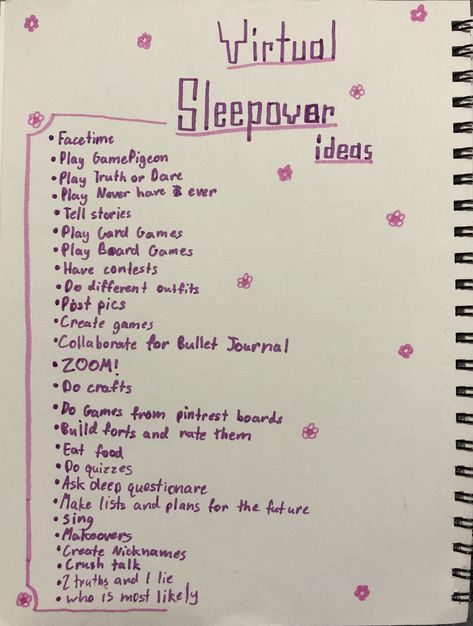 Virtual
Sleepover
ideas
• Facetime
• Play GamePigeon
• Play Truth or Dare
• Play Never have I ever
• Tell stories
• Play Card Games
• Play Board Games
• Have contests
• Do different outfits
• Post pics
• Create games
• Collaborate for Bullet Journal
• ZOOM!
• Do crafts
• Do Games from pintrest boards
• Build forts and rate them
• Eat food
• Do quizzes
• Ask deep questionare
• Make lists and plans for the future
• Sing
• Makeovers
• Create Nicknames
• Crush talk
• 2 truths and 1 lie
• who is most likely